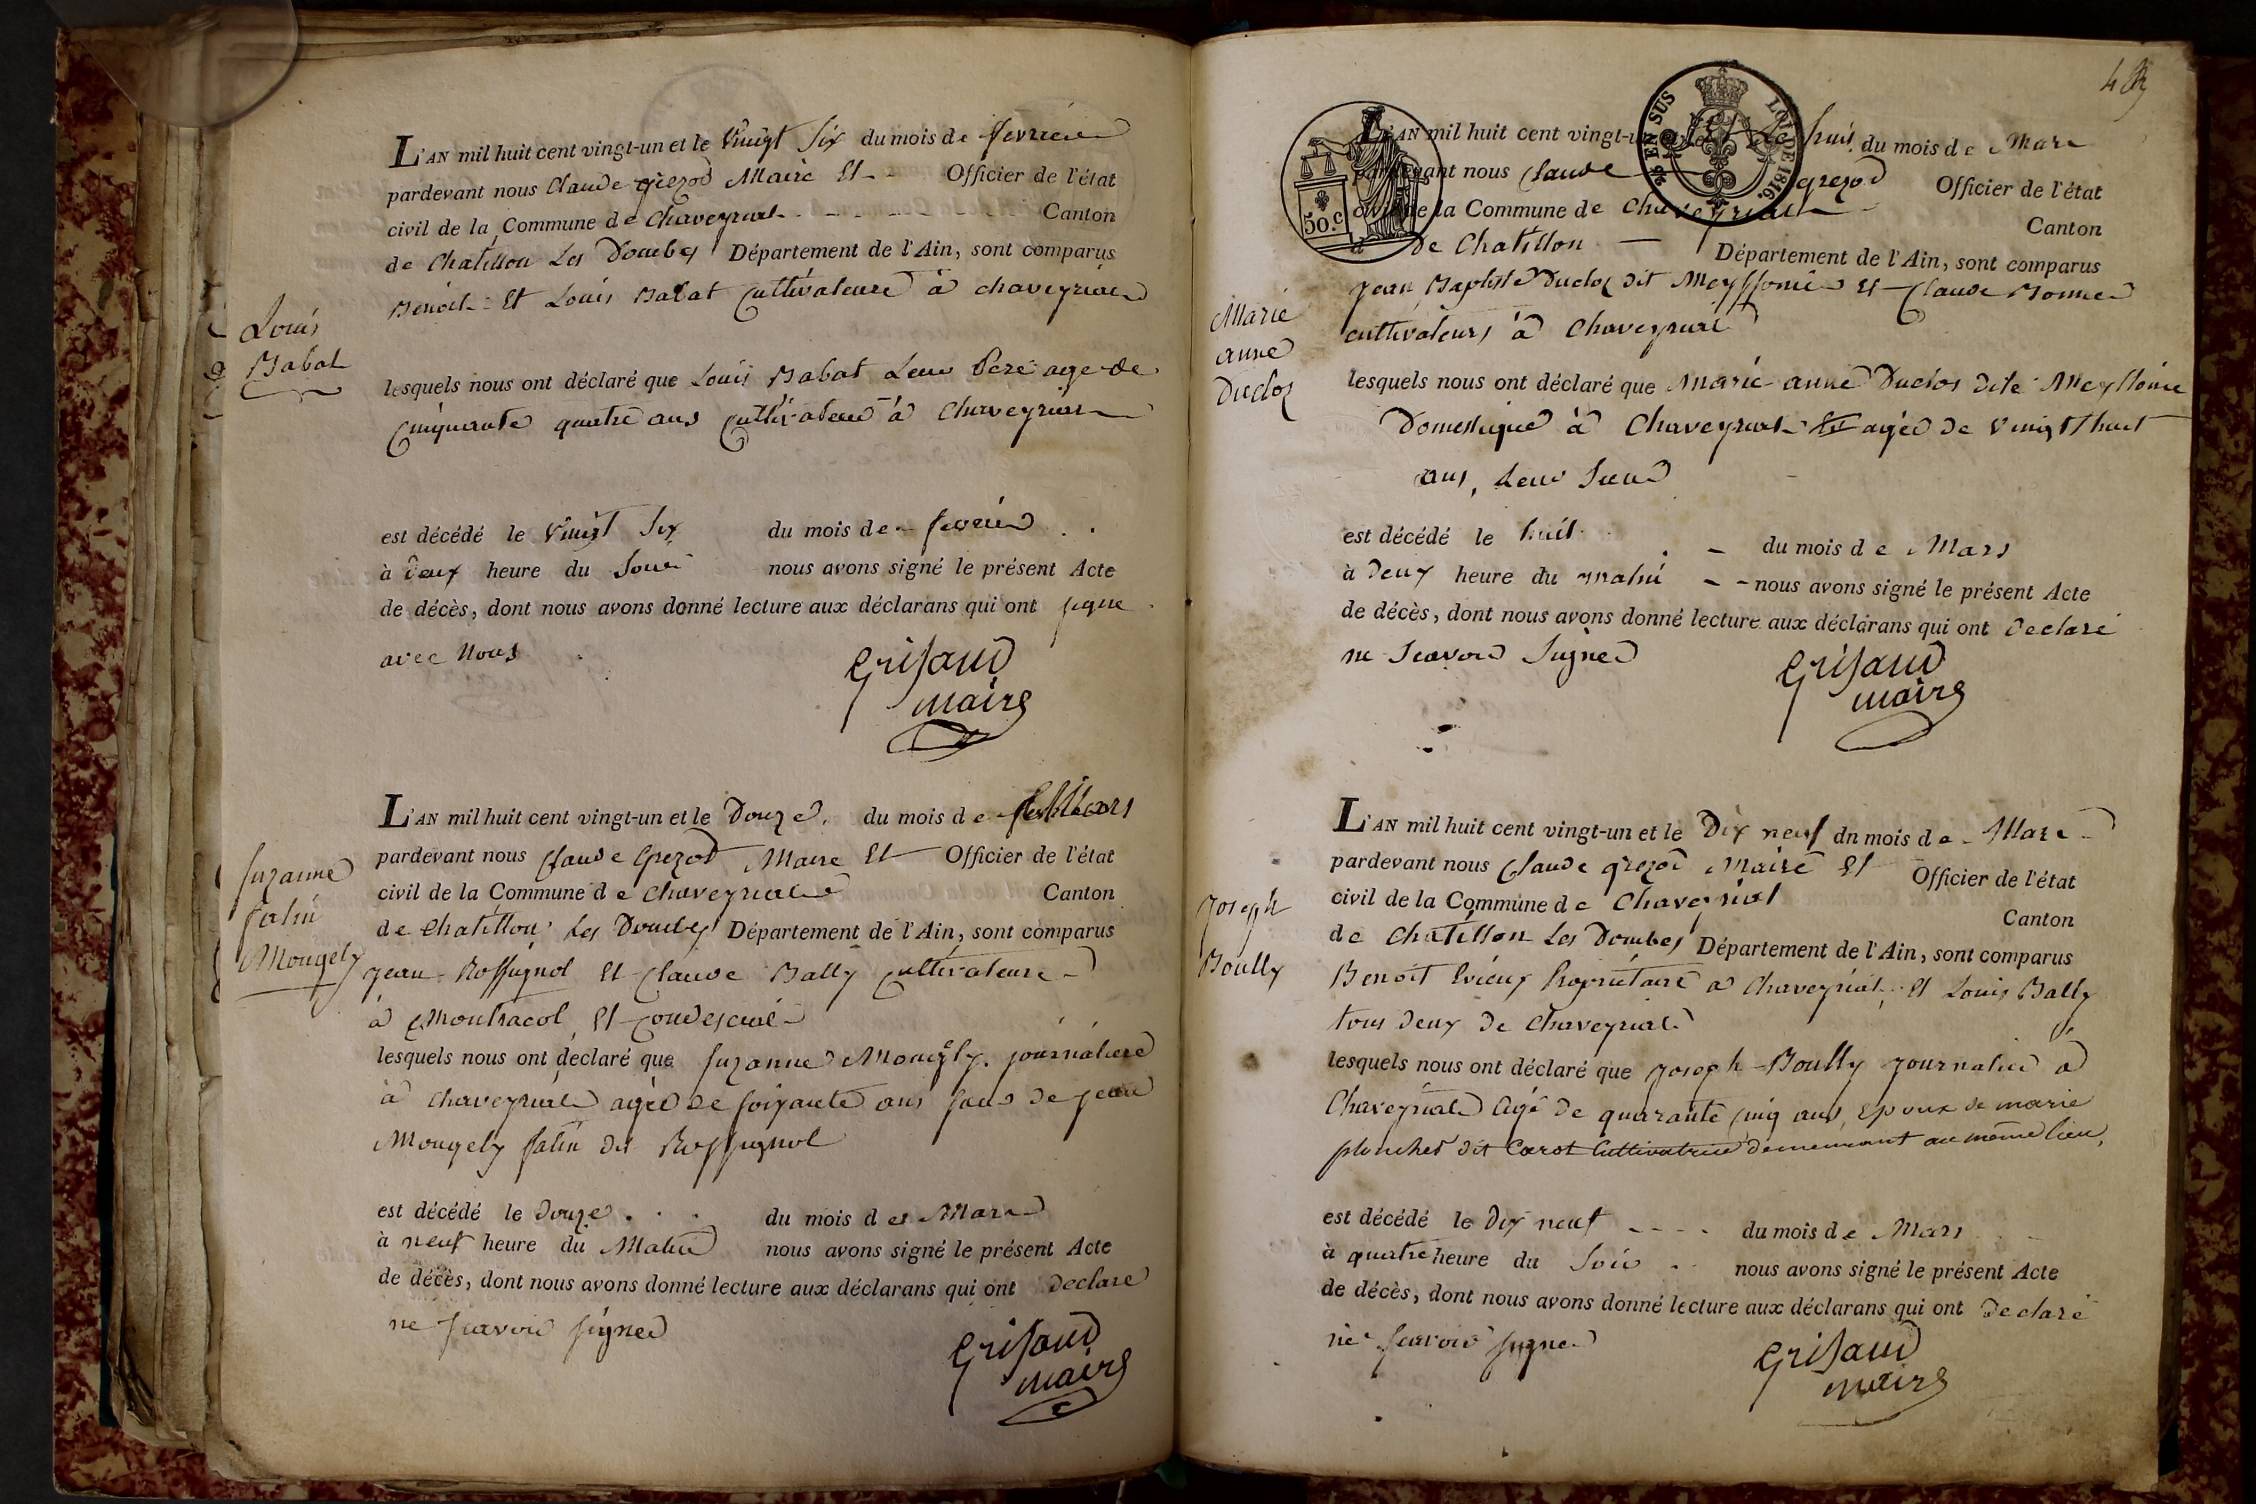 Louis
Babat
L'AN mil huit cent vingt-un et le vingt six du mois de fevrier
pardevant nous Claude grezod Maire Et Officier de l'état
civil de la Commune de Chaveyriat Canton
de Chatillon Les Dombes Département de l'Ain, sont comparus
Benoit Et Louis Babat Cultivateurs à chaveyriat
lesquels nous ont déclaré que Louis Babat Leur Pere age de
Cinquante quatre ans Cultivateur à Chaveyriat
est décédé le vingt six du mois de fevrier
à deux heure du soir nous avons signé le présent Acte
de décès, dont nous avons donné lecture aux déclarans qui ont signe
avec Nous
maire
Suzanne
fatin
Mongely
L'AN mil huit cent vingt-un et le Douze du mois de Mars
pardevant nous Claude Grezod Maire Et Officier de l'état
civil de la Commune de Chaveyriat Canton
de Chatillon Les Dombes Département de l'Ain, sont comparus
jean Rossignol Et Claude Bally Cultivateurs
à Montracol Et Condesciat
lesquels nous ont déclaré que Suzanne Mongely journaliere
à Chaveyriat agée de soixante ans de jean
Mongely fatin dit Rossignol
est décédé le douze du mois de Mars
à neuf heure du Matin nous avons signé le présent Acte
de décès, dont nous avons donné lecture aux déclarans qui ont declare
ne scavoir signer
maire
50.c
25 EN SUS LOI DE 1816.
Marie
anne
Duclos
L'AN mil huit cent vingt-un et le huit du mois de Mars
pardevant nous Claude grezod Officier de l'état
civil de la Commune de Chaveyriat Canton
de Chatillon Département de l'Ain, sont comparus
jean Baptiste Duclos dit Et Claude
cultivateurs à Chaveyriat
lesquels nous ont déclaré que Marie anne Duclos dite
Domestique à Chaveyriat agée de vingt huit
ans, Leur Soeur
est décédé le huit du mois de Mars
à deux heure du matin nous avons signé le présent Acte
de décès, dont nous avons donné lecture aux déclarans qui ont declaré
ne scavoir signer
maire
Joseph
Boully
L'AN mil huit cent vingt-un et le Dix neuf dn mois de Mars
pardevant nous Claude grezod Maire Et Officier de l'état
civil de la Commune de Chaveyriat Canton
de Chatillon Les Dombes Département de l'Ain, sont comparus
Benoit Evieux Proprietaire a Chaveyriat Et Louis Bally
tous deux de Chaveyriat
lesquels nous ont déclaré que Joseph Boully journalier à
Chaveyriat Agé de quarante cinq ans, Epoux de marie
planches dit Carot Cultivatrice demeurant au même lieu,
est décédé le dix neuf du mois de Mars
à quatre heure du soir nous avons signé le présent Acte
de décès, dont nous avons donné lecture aux déclarans qui ont declaré
ne scavoir signer
maire